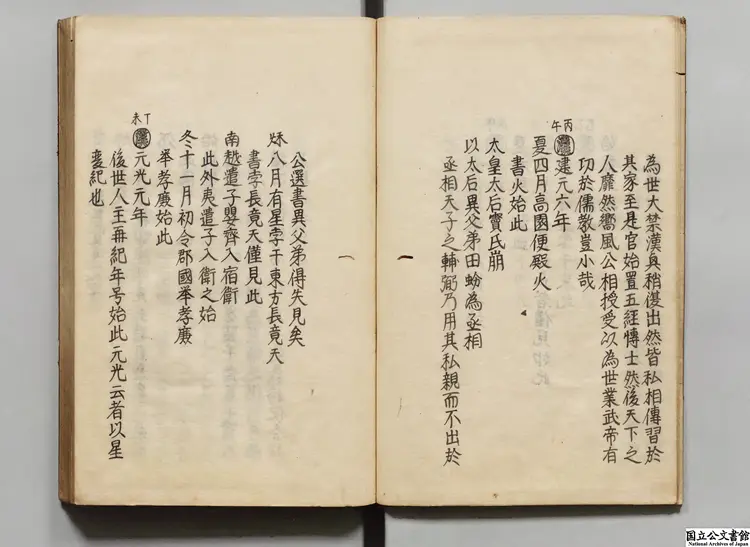 為世大禁漢興稍復出然皆私相傳習於
其家至是官始置五經博士然後天下之
人靡然嚮風公相授受以為世業武帝有
功於儒教豈小哉
丙午
建元六年
夏四月高園便殿火
書火始此
太皇太后竇氏崩
以太后異父弟田蚡為丞相
丞相天子之輔弼乃用其私親而不出於
公選書異父弟得失見矣
秌八月有星孛于東方長竟天
書孛長竟天僅見此
南越遣子嬰齊入宿衛
此外夷遣子入衛之始
冬十一月初令郡國舉孝廉
舉孝廉始此
丁未
元光元年
後世人主再紀年号始此元光云者以星
変紀也
国立公文書館
National Archives of Japan